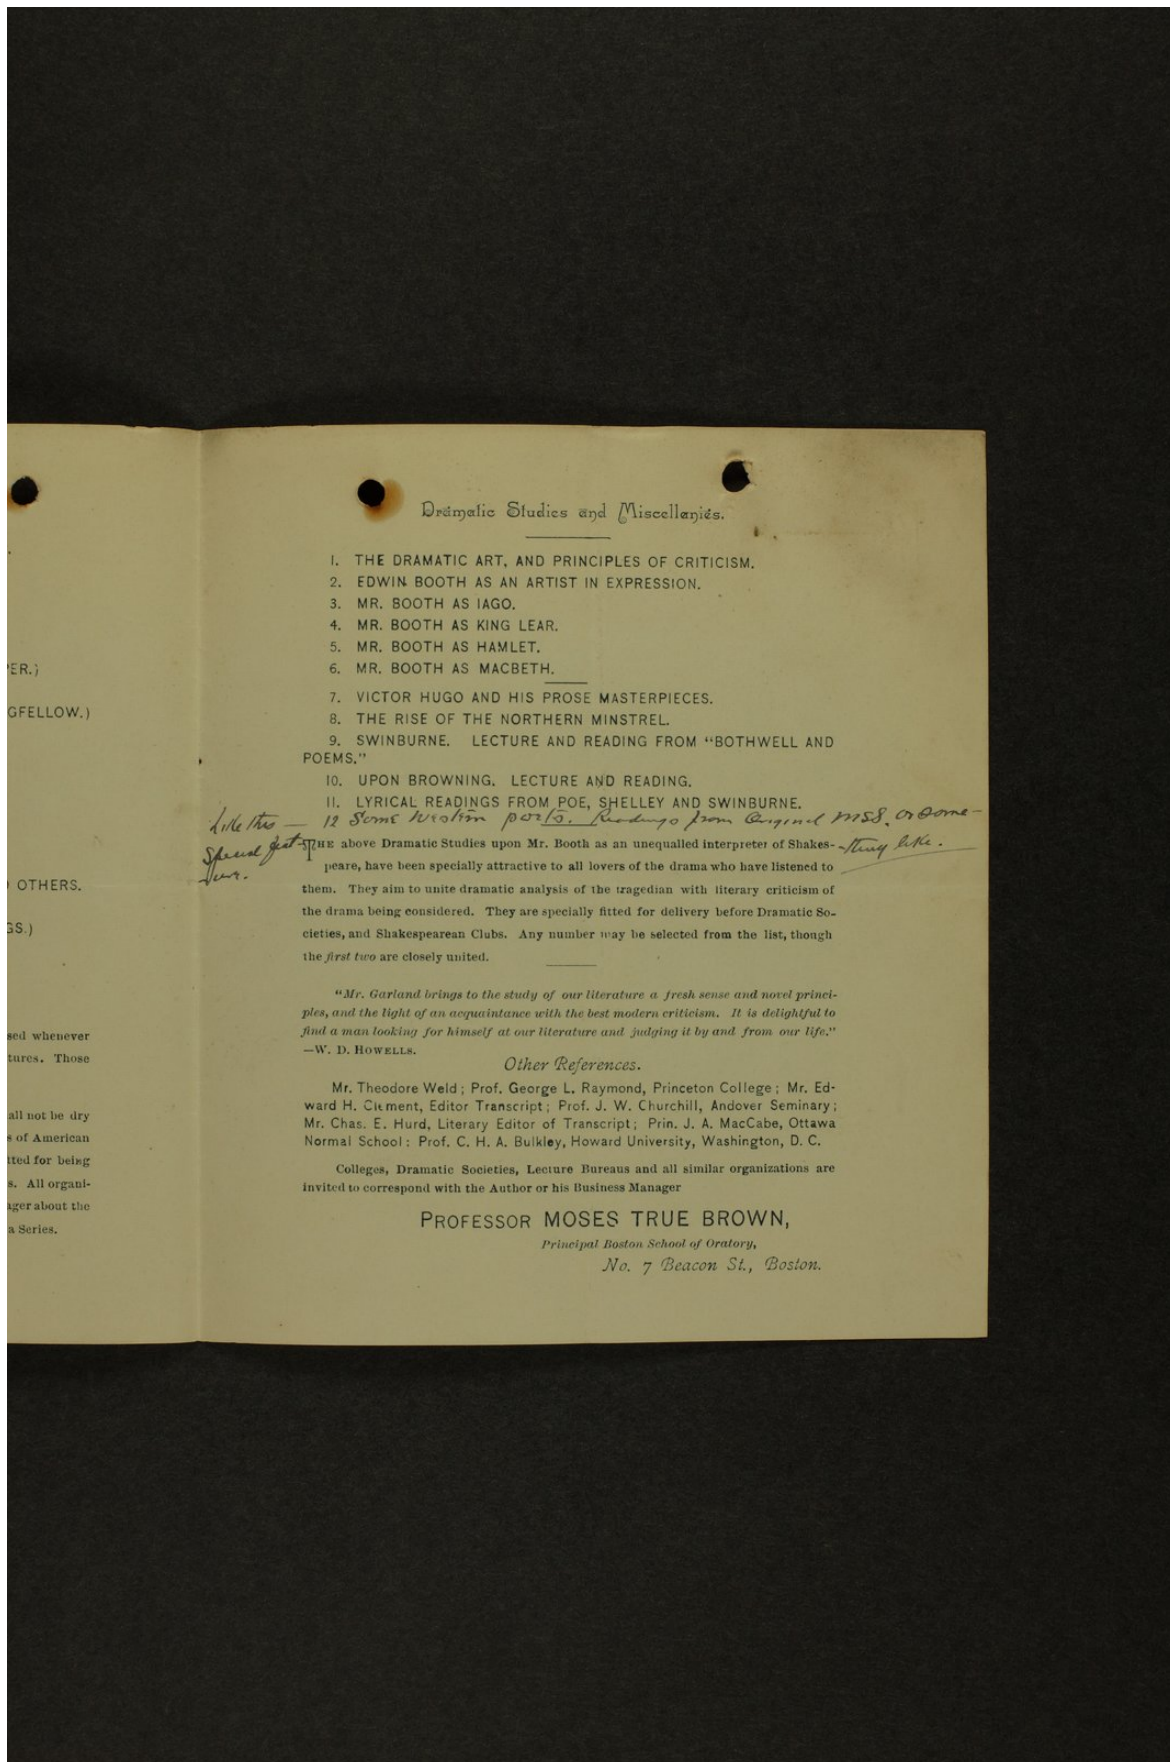 ER.)
GFELLOW.)
OTHERS.
GS.)
sed whenever
tures. Those
all not be dry
s of American
tted for being
s. All organi-
ager about the
a Series.
Dramatic Studies and Miscellanies.
1. THE DRAMATIC ART, AND PRINCIPLES OF CRITICISM.
2. EDWIN BOOTH AS AN ARTIST IN EXPRESSION.
3. MR. BOOTH AS IAGO.
4. MR. BOOTH AS KING LEAR.
5. MR. BOOTH AS HAMLET.
6. MR. BOOTH AS MACBETH.
7. VICTOR HUGO AND HIS PROSE MASTERPIECES.
8. THE RISE OF THE NORTHERN MINSTREL.
9. SWINBURNE. LECTURE AND READING FROM "BOTHWELL AND
POEMS."
10. UPON BROWNING. LECTURE AND READING.
11. LYRICAL READINGS FROM POE, SHELLEY AND SWINBURNE.
Like this — 12 Some Western poets. Readings from Original MSS. or some-
thing like.
Special feat-
ure.
THE above Dramatic Studies upon Mr. Booth as an unequalled interpreter of Shakes-
peare, have been specially attractive to all lovers of the drama who have listened to
them. They aim to unite dramatic analysis of the tragedian with literary criticism of
the drama being considered. They are specially fitted for delivery before Dramatic So-
cieties, and Shakespearean Clubs. Any number may be selected from the list, though
the first two are closely united.
"Mr. Garland brings to the study of our literature a fresh sense and novel princi-
ples, and the light of an acquaintance with the best modern criticism. It is delightful to
find a man looking for himself at our literature and judging it by and from our life."
—W. D. HOWELLS.
Other References.
Mr. Theodore Weld; Prof. George L. Raymond, Princeton College; Mr. Ed-
ward H. Clement, Editor Transcript; Prof. J. W. Churchill, Andover Seminary;
Mr. Chas. E. Hurd, Literary Editor of Transcript; Prin. J. A. MacCabe, Ottawa
Normal School: Prof. C. H. A. Bulkley, Howard University, Washington, D. C.
Colleges, Dramatic Societies, Lecture Bureaus and all similar organizations are
invited to correspond with the Author or his Business Manager
PROFESSOR MOSES TRUE BROWN,
Principal Boston School of Oratory,
No. 7 Beacon St., Boston.